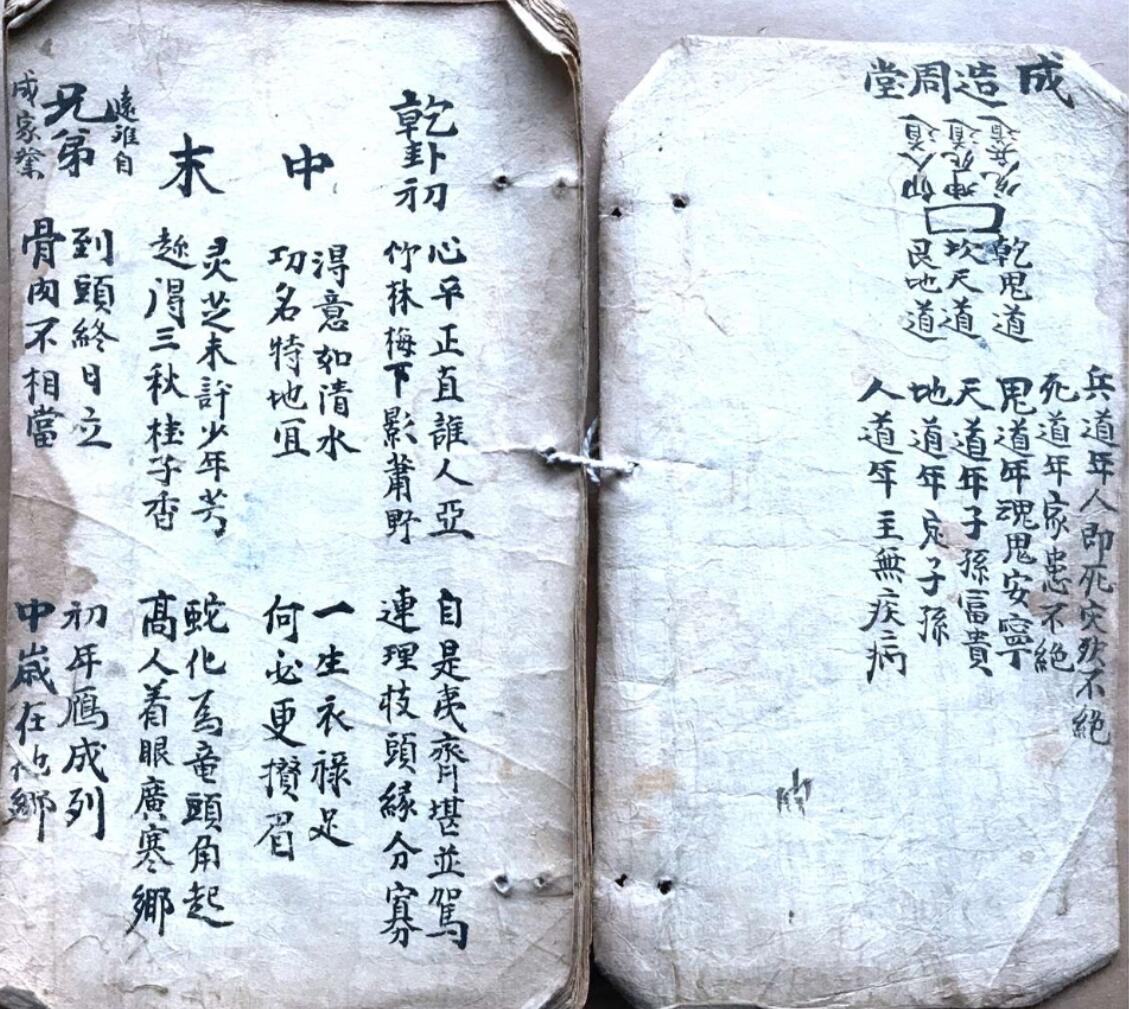 成造周堂
兌兵道
坤死道
卯人道
乾鬼道
坎天道
艮地道
兵道年人即死灾殃不絕
死道年家患不絕
鬼道年魂鬼安寧
天道年子孫富貴
地道年 子孫
人道年主無疾病
乾卦初
心平正直誰人亞 自是夷齊堪並駕
竹林梅下影蕭野 連理枝頭緣分寡
中
淂意如清水 一生衣祿足
功名特地宜 何必更攢眉
末
灵芝未許少年芳 蛇化為竜頭角起
趂淂三秋桂子香 高人着眼廣寒鄉
遠雖自
兄弟
成家業
到頭終日立 初年鴈成列
骨肉不相當 中歲在他鄉